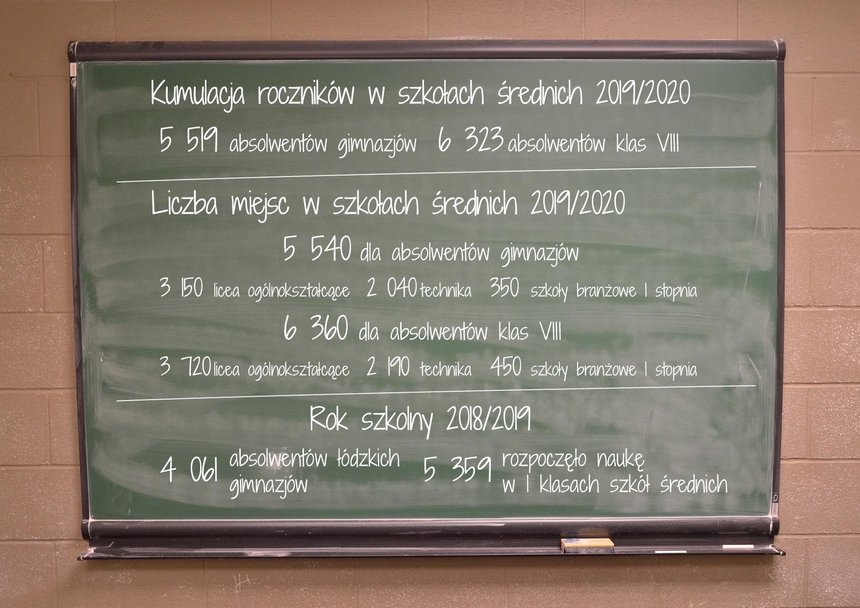 Kumulacja roczników w szkołach średnich 2019/2020
5 519 absolwentów gimnazjów 6 323 absolwentów klas VIII
Liczba miejsc w szkołach średnich 2019/2020
5 540 dla absolwentów gimnazjów
3 150 licea ogólnokształcące 2 040 technika 350 szkoły branżowe I stopnia
6 360 dla absolwentów klas VIII
3 720 licea ogólnokształcące 2 190 technika 450 szkoły branżowe I stopnia
Rok szkolny 2018/2019
4 061 absolwentów łódzkich gimnazjów
5 359 rozpoczęło naukę w I klasach szkół średnich